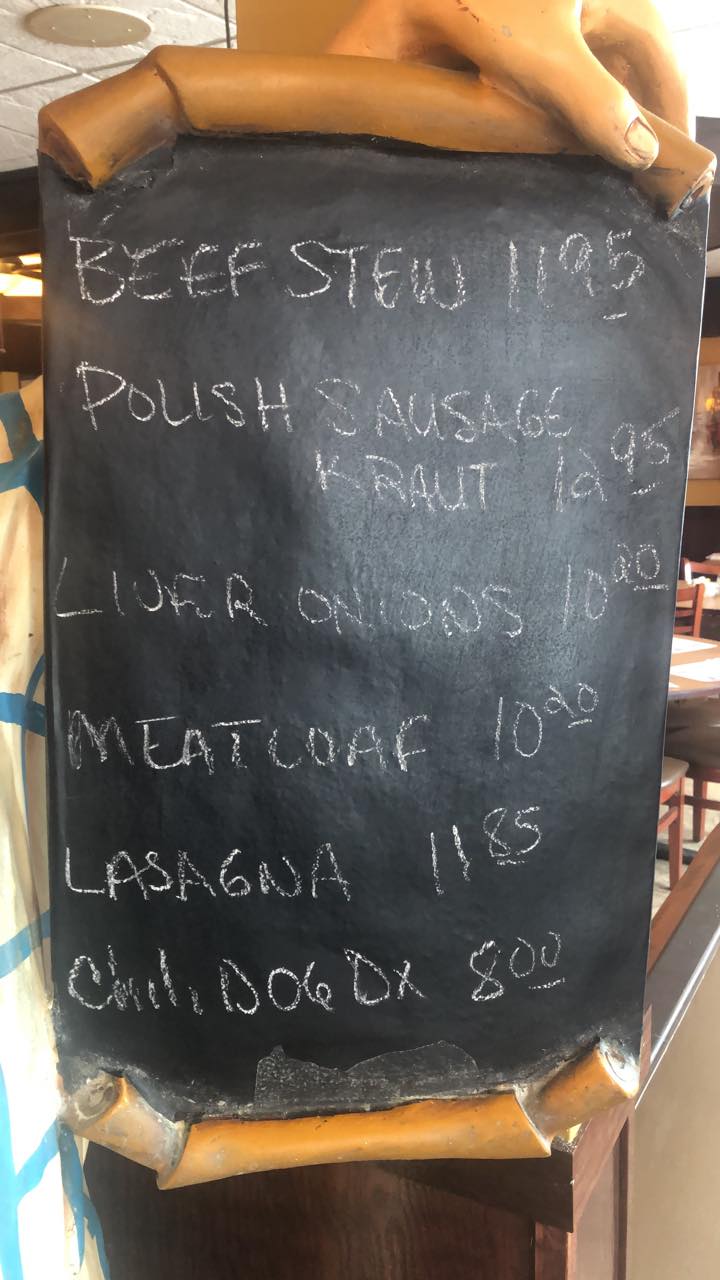 BEEF STEW 11 95
POLISH SAUSAGE
KRAUT 12 95
LIVER ONIONS 10 20
MEATLOAF 10 20
LASAGNA 11 85
Chili DOG DX 8 00